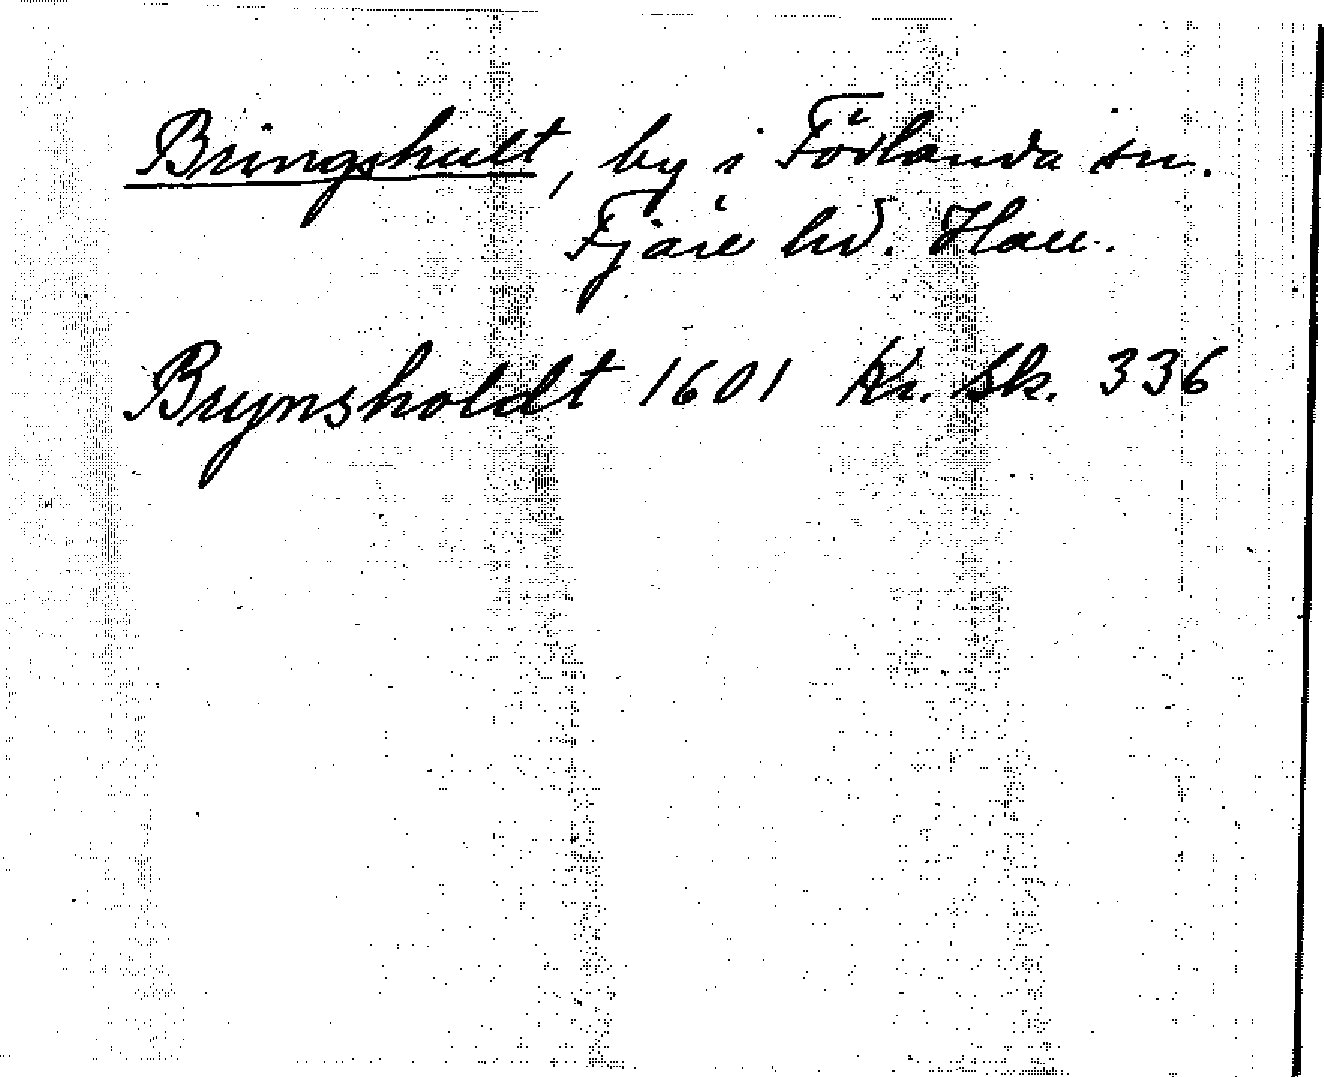 Bringshult, by i Förlanda sn.
Fjäre hd. Hall.
Brynsholdt 1601 Kr. Sk. 336